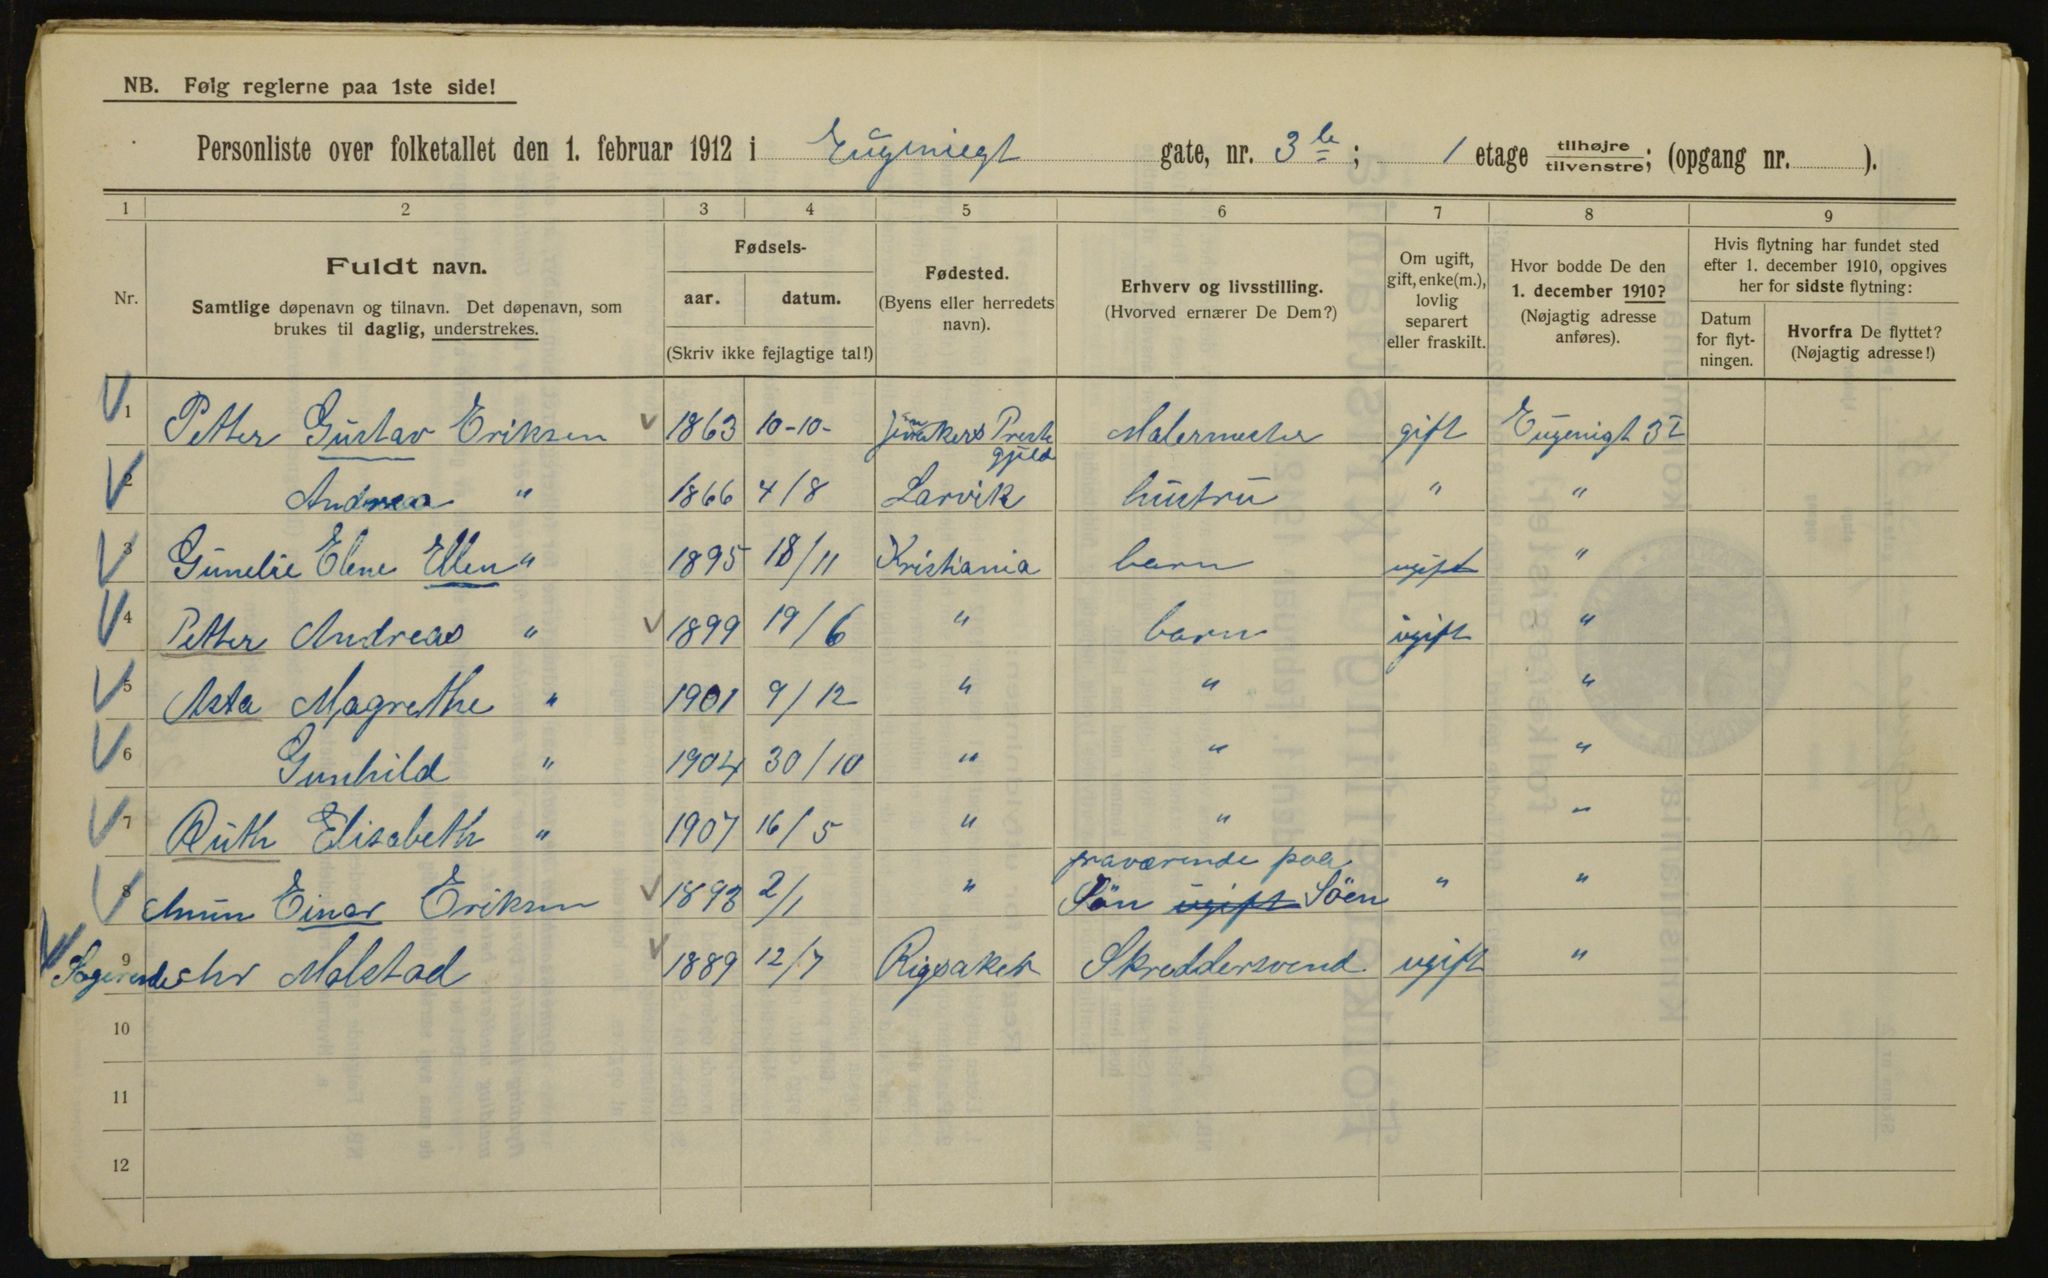 NB. Følg reglerne paa 1ste side!
Personliste over folketallet den 1. februar 1912 i Eugeniegt gate, nr. 3 b; 1 etage tilhøjre tilvenstre; (opgang nr. ).
1 2 3 4 5 6 7 8 9
Nr.
Fuldt navn.
Samtlige døpenavn og tilnavn. Det døpenavn, som
brukes til daglig, understrekes.
Fødsels-
aar. datum.
(Skriv ikke fejlagtige tal!)
Fødested.
(Byens eller herredets
navn).
Erhverv og livsstilling.
(Hvorved ernærer De Dem?)
Om ugift,
gift, enke(m.),
lovlig
separert
eller fraskilt.
Hvor bodde De den
1. december 1910?
(Nøjagtig adresse
anføres).
Hvis flytning har fundet sted
efter 1. december 1910, opgives
her for sidste flytning:
Datum
for flyt-
ningen.
Hvorfra De flyttet?
(Nøjagtig adresse!)
1 Petter Gustav Eriksen 1863 10-10- Prestegjeld Malermester gift Eugenigt 3 I
2 Andrea " 1866 4/8 Larvik hustru " "
3 Gunelie Elene Ellen " 1895 18/11 Kristiania barn ugift "
4 Petter Andreas " 1899 19/6 " barn ugift "
5 Asta Magrethe " 1901 9/12 " " "
6 Gunhild " 1904 30/10 " " "
7 Ruth Elisabeth " 1907 16/5 " " "
8 Einar Eriksen 1893 2/1 " Søn ugift fraværende paa Søen " "
9 Logerende hr Malstad 1889 12/7 Rigsaker Skreddersvend ugift "
10
11
12